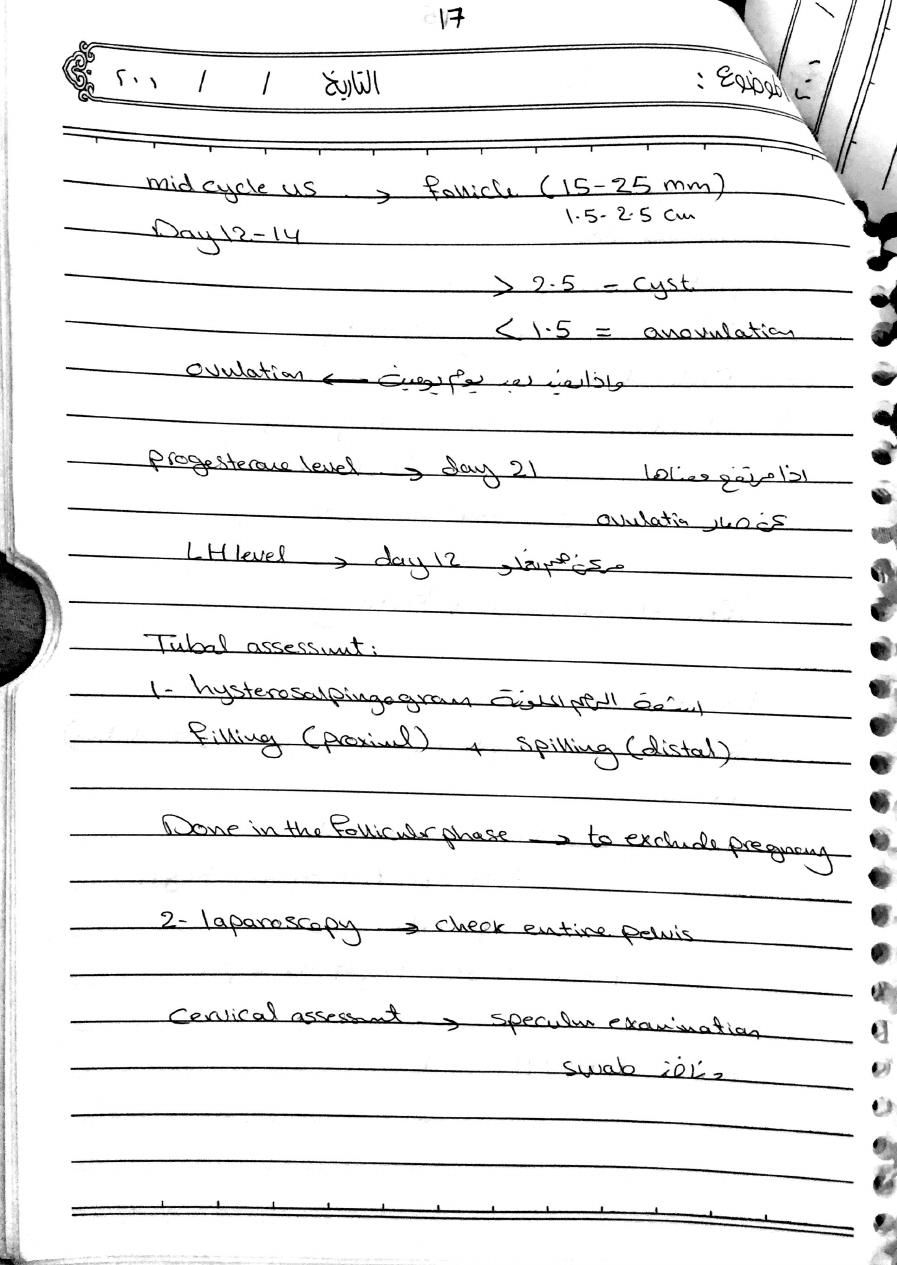 17
الموضوع : التاريخ / / ٢٠٠١
mid cycle us → follicle (15-25 mm)
1.5- 2.5 cm
Day 12-14
> 2.5 = cyst
< 1.5 = anovulation
ovulation ← بعد يوم يومين
progesterone level → day 21 اذا مرتفع معناها
صار ovulatio
LH level → day 12
Tubal assessmt:
1- hysterosalpingogram اشعة الرحم الملونة
filling (proximl) + spilling (distal)
Done in the follicular phase → to exclude pregnancy
2- laparoscopy → check entire pelvis
Cervical assessmt → speculum examination
وناخذ swab